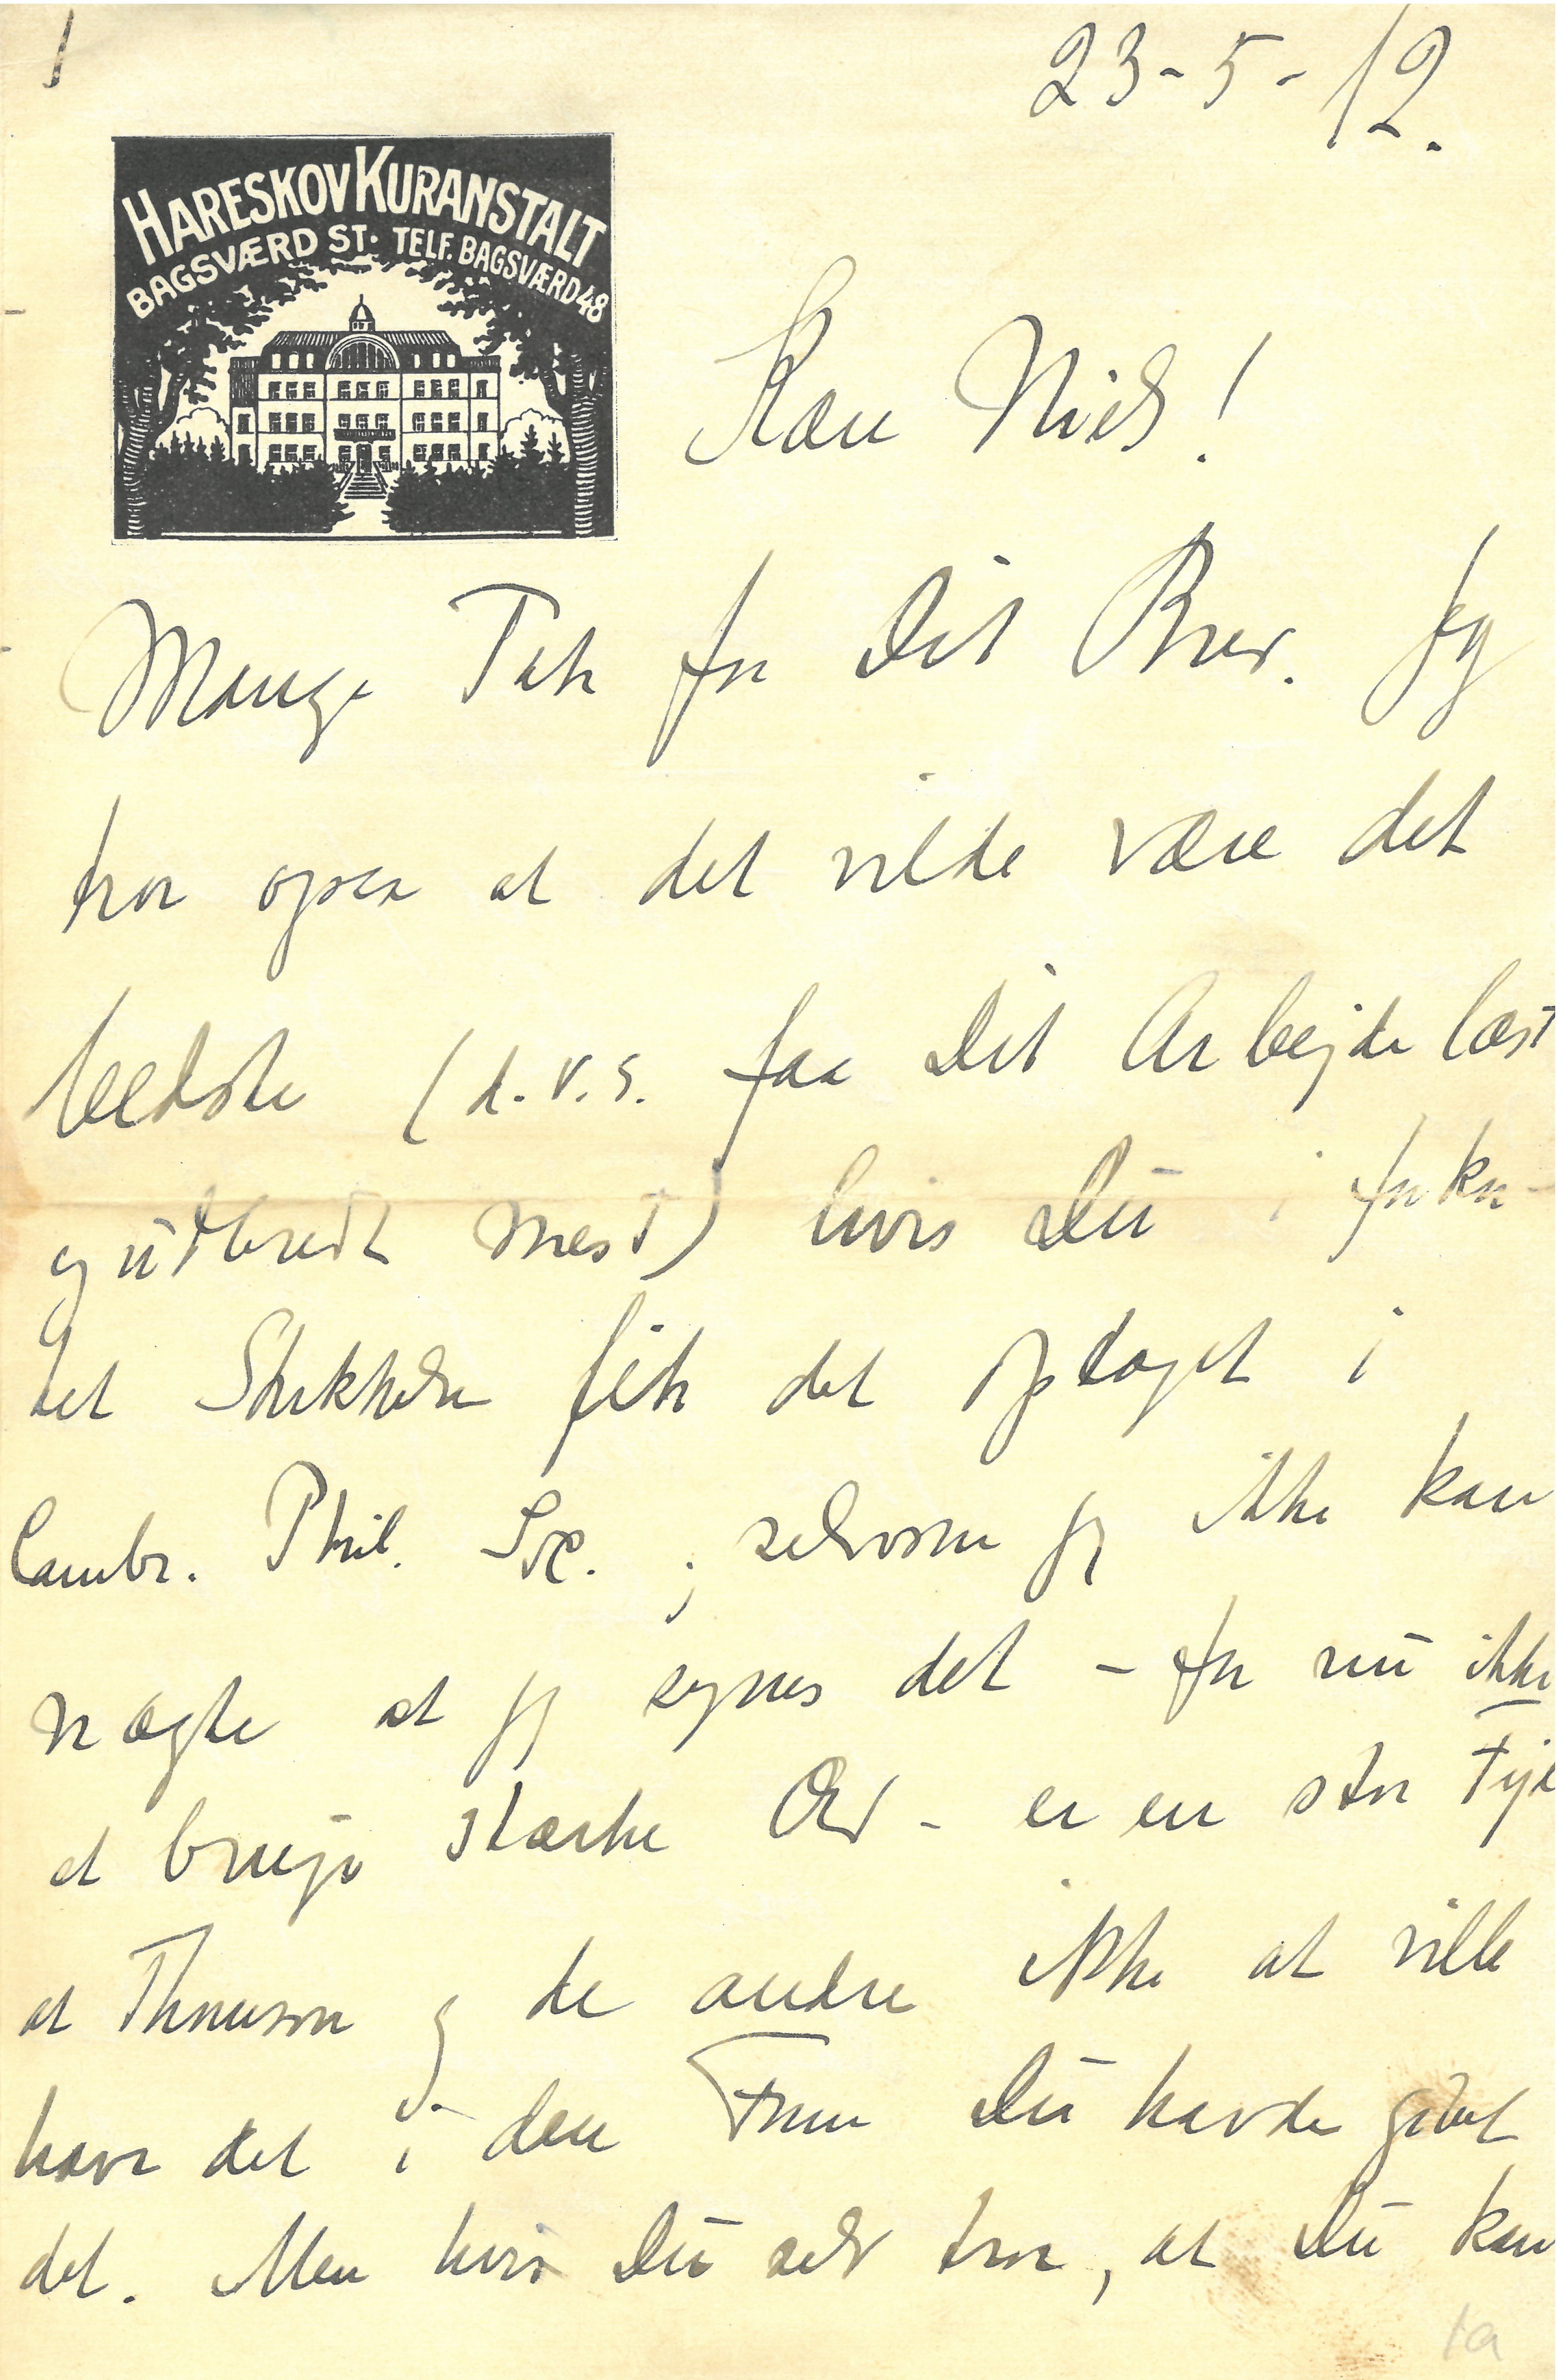 1
23-5-12.
HARESKOV KURANSTALT
BAGSVÆRD ST. TELF. BAGSVÆRD 48
Kære Niels!
Mange Tak for Dit Brev. Jeg
tror ogsaa at det vilde være det
bedste (d.v.s. faa Dit Arbejde læst
og udbredt mest) hvis Du i forkor-
tet Skikkelse fik det optaget i
Cambr. Phil. Soc.; selvom jeg ikke kan
nægte at jeg synes det - for nu ikke
at bruge stærke Ord - er en stor Fejl
at Thomson og de andre ikke at ville
have det i den Form Du havde givet
det. Men hvis Du selv tror, at Du kan
1a